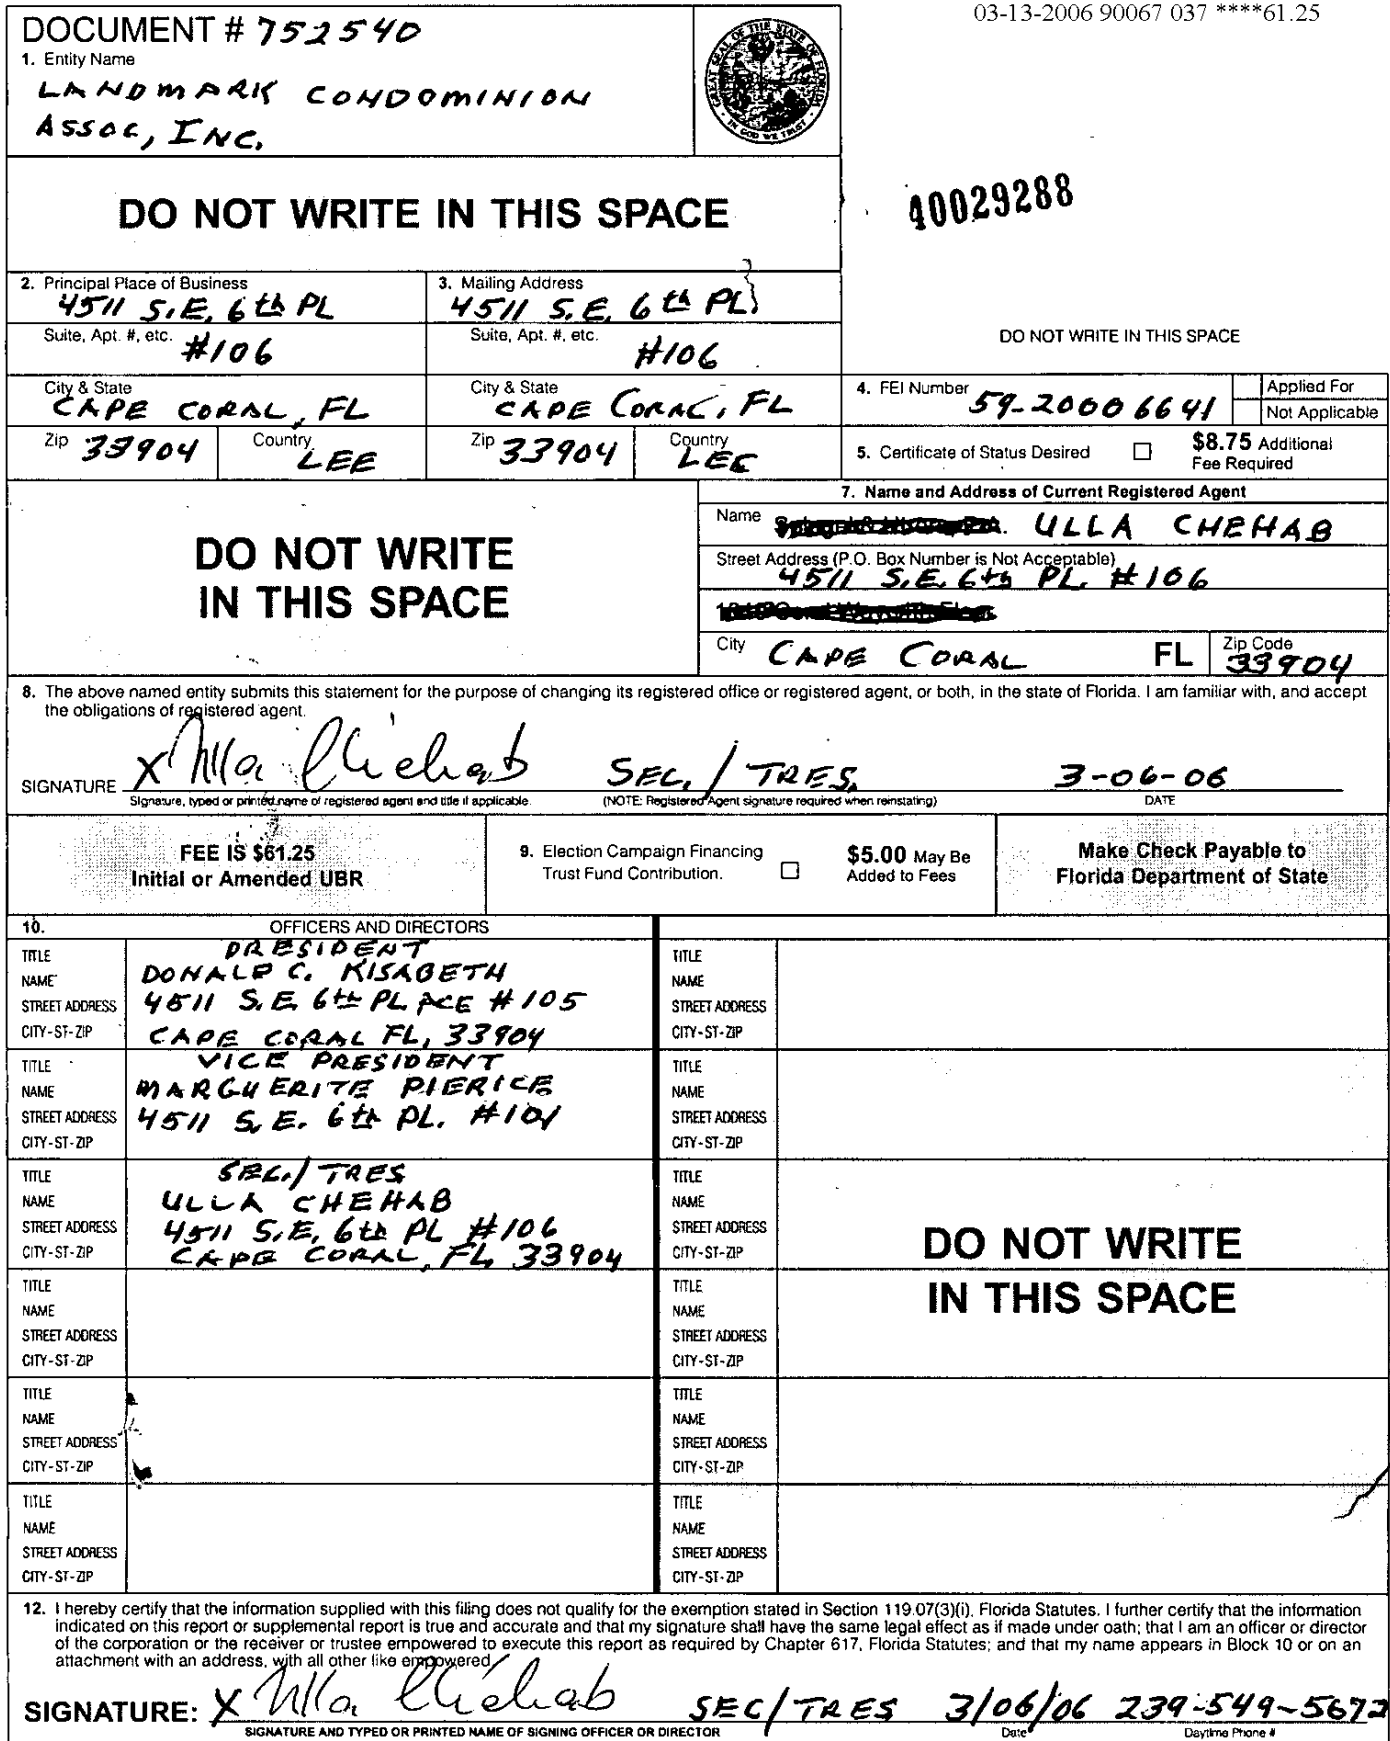 03-13-2006 90067 037 ****61.25
DOCUMENT # 752540
1. Entity Name
LANDMARK CONDOMINION
ASSOC, INC.
GREAT SEAL OF THE STATE OF FLORIDA
IN GOD WE TRUST
DO NOT WRITE IN THIS SPACE
40029288
2. Principal Place of Business
4511 S.E. 6th PL
3. Mailing Address
4511 S.E. 6th PL.
Suite, Apt. #, etc. #106
Suite, Apt. #, etc. #106
DO NOT WRITE IN THIS SPACE
City & State
CAPE CORAL, FL
City & State
CAPE CORAL, FL
4. FEI Number 59-20006641
Applied For
Not Applicable
Zip 33904
Country LEE
Zip 33904
Country LEE
5. Certificate of Status Desired
$8.75 Additional
Fee Required
DO NOT WRITE
IN THIS SPACE
7. Name and Address of Current Registered Agent
Name ULLA CHEHAB
Street Address (P.O. Box Number is Not Acceptable)
4511 S.E. 6th PL. #106
City CAPE CORAL FL
Zip Code
33904
8. The above named entity submits this statement for the purpose of changing its registered office or registered agent, or both, in the state of Florida. I am familiar with, and accept
the obligations of registered agent.
SIGNATURE X Ulla Chehab SEC. / TRES. 3-06-06
Signature, typed or printed name of registered agent and title if applicable. (NOTE: Registered Agent signature required when reinstating) DATE
FEE IS $61.25
Initial or Amended UBR
9. Election Campaign Financing
Trust Fund Contribution.
$5.00 May Be
Added to Fees
Make Check Payable to
Florida Department of State
10. OFFICERS AND DIRECTORS
TITLE PRESIDENT
NAME DONALD C. KISABETH
STREET ADDRESS 4511 S.E. 6th PLACE #105
CITY-ST-ZIP CAPE CORAL FL, 33904
TITLE
NAME
STREET ADDRESS
CITY-ST-ZIP
TITLE VICE PRESIDENT
NAME MARGUERITE PIERICE
STREET ADDRESS 4511 S.E. 6th PL. #101
CITY-ST-ZIP
TITLE
NAME
STREET ADDRESS
CITY-ST-ZIP
TITLE SEC./TRES
NAME ULLA CHEHAB
STREET ADDRESS 4511 S.E. 6th PL #106
CITY-ST-ZIP CAPE CORAL, FL 33904
TITLE
NAME
STREET ADDRESS
CITY-ST-ZIP
DO NOT WRITE
IN THIS SPACE
TITLE
NAME
STREET ADDRESS
CITY-ST-ZIP
TITLE
NAME
STREET ADDRESS
CITY-ST-ZIP
TITLE
NAME
STREET ADDRESS
CITY-ST-ZIP
TITLE
NAME
STREET ADDRESS
CITY-ST-ZIP
TITLE
NAME
STREET ADDRESS
CITY-ST-ZIP
TITLE
NAME
STREET ADDRESS
CITY-ST-ZIP
12. I hereby certify that the information supplied with this filing does not qualify for the exemption stated in Section 119.07(3)(i), Florida Statutes. I further certify that the information
indicated on this report or supplemental report is true and accurate and that my signature shall have the same legal effect as if made under oath; that I am an officer or director
of the corporation or the receiver or trustee empowered to execute this report as required by Chapter 617, Florida Statutes; and that my name appears in Block 10 or on an
attachment with an address, with all other like empowered
SIGNATURE: X Ulla Chehab SEC/TRES 3/06/06 239-549-5672
SIGNATURE AND TYPED OR PRINTED NAME OF SIGNING OFFICER OR DIRECTOR Date Daytime Phone #